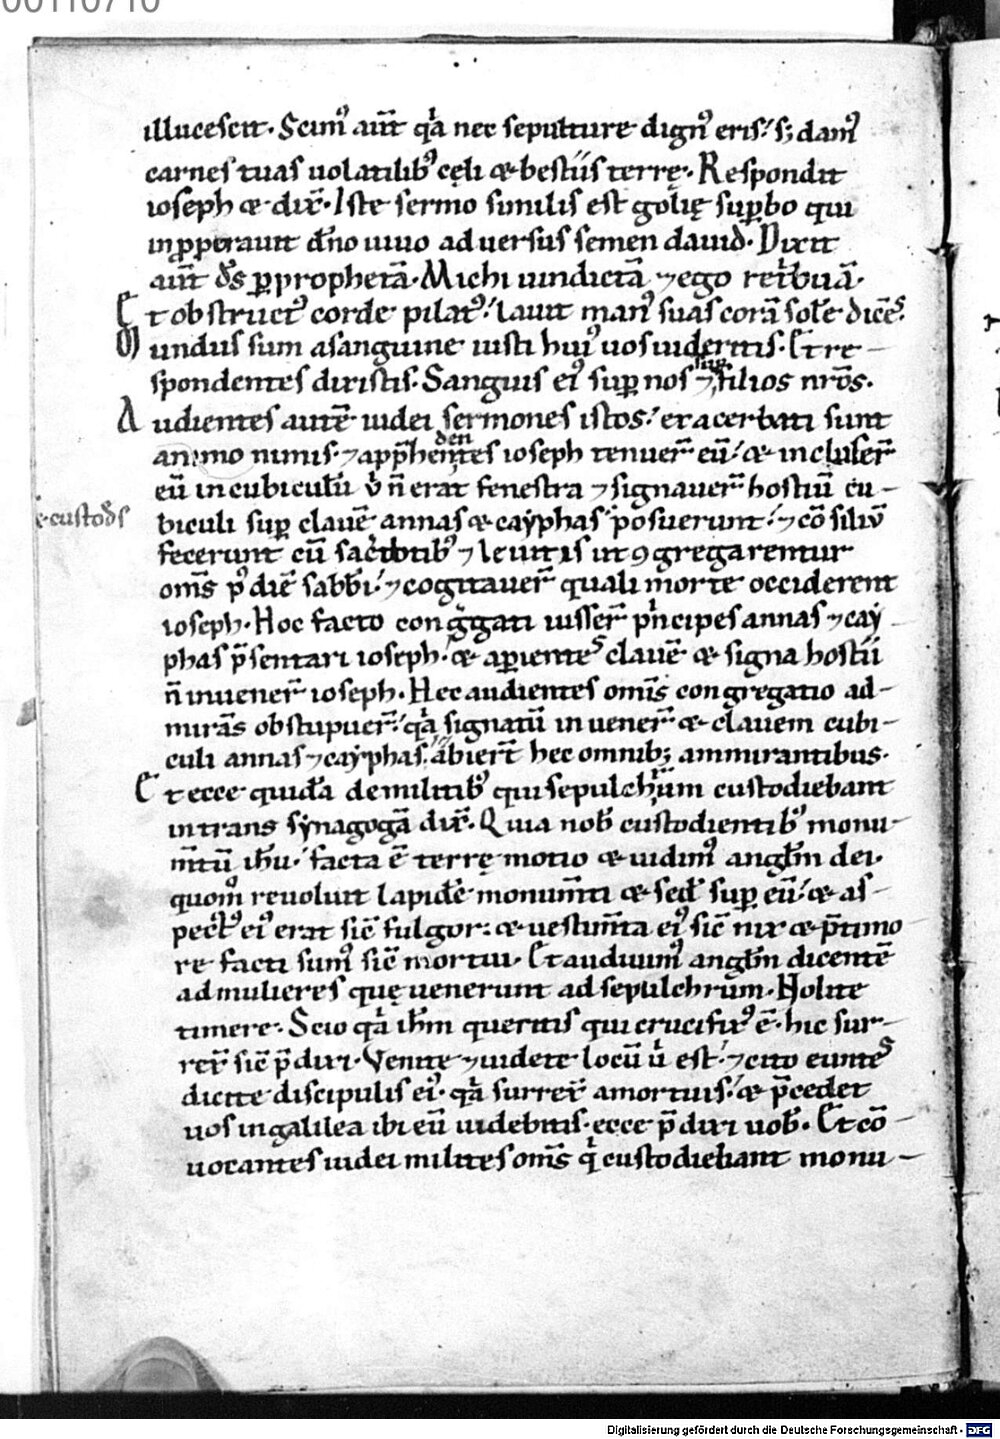 00110710
illucescit. Scim᷒ aut̄ qͥa nec sepulture dign᷒ eris.́ s; dam᷒
carnes tuas uolatilib᷒ cęli & bestiis terrę. Respondit
ioseph & dix̄. Iste sermo similis est golię suꝑbo qui
inꝓꝑauit dn̄o uiuo aduersus semen dauid. Dixit
aut̄ ds̄ ꝑ prophetā. Michi uindictā ⁊ ego retͥbuā.
Et obstruct᷒ corde pilat᷒.́ lauit man᷒ suas corā sole dicēs.
Mundus sum a sanguine iusti hui᷒ uos uideritis. Et re-
spondentes dixistis. Sanguis ei᷒ suꝑ nos ⁊ suꝑ filios nr̄os.
Audientes autē iudei sermones istos.́ exacerbati sunt
animo nimis. ⁊ app̄hendentes ioseph tenuer̄ eū.́ & incluser̄
eū in cubiculū uͥ n̄ erat fenestra ⁊ signauer̄ hostiū cu-
& custod̄s
biculi suꝑ clauē annas & cayphas posuerunt.́ ⁊ cōsiliū
fecerunt cū sac̄dotib᷒ ⁊ leuitis ut ꝯgregarentur
om̄s p᷒ diē sabb̄i.́ ⁊ cogitauer̄ quali morte occiderent
ioseph. Hoc facto congͤgati iusser̄ pͥncipes annas ⁊ cay-
phas p̄sentari ioseph.́ & aꝑientes clauē & signa hostii
n̄ inuener̄ ioseph. Hec audientes om̄is congregatio ad-
mirās obstupuer̄.́ qͥa signatū inuener̄ & clauem cubi-
culi annas ⁊ cayphas. abier̄t hec omnib; ammirantibus.
Et ecce quidā de militib᷒ qui sepulchrum custodiebant
intrans synagogā dix̄. Quia nob̄ custodientib᷒ monu-
m̄tū ih̄u.́ facta ē terrę motio & uidim᷒ angl̄m dei.
quom᷒ reuoluit lapidē monum̄ti & sed̄ suꝑ eū.́ & as-
pect᷒ ei᷒ erat sic̄ fulgor: & uestim̄ta ei᷒ sic̄ nix & p̄ timo-
re facti sum᷒ sic̄ mortui. Et audiuim᷒ angl̄m dicentē
ad mulieres quę uenerunt ad sepulchrum. Nolite
timere. Scio qͥa ih̄m queritis qui crucifix᷒ ē. hic sur-
rex̄ sic̄ p̄dixi. Venite ⁊ uidete locū uͥ est.́ ⁊ cito euntes
dicite discipulis ei᷒. qͥa surrex̄ a mortuis.́ & p̄cedet
uos in galilea ibi eū uidebitis. ecce p̄dixi uob̄. Et cō-
uocantes iudei milites om̄s qͥ custodiebant monu-
Digitalisierung gefördert durch die Deutsche Forschungsgemeinschaft - DFG